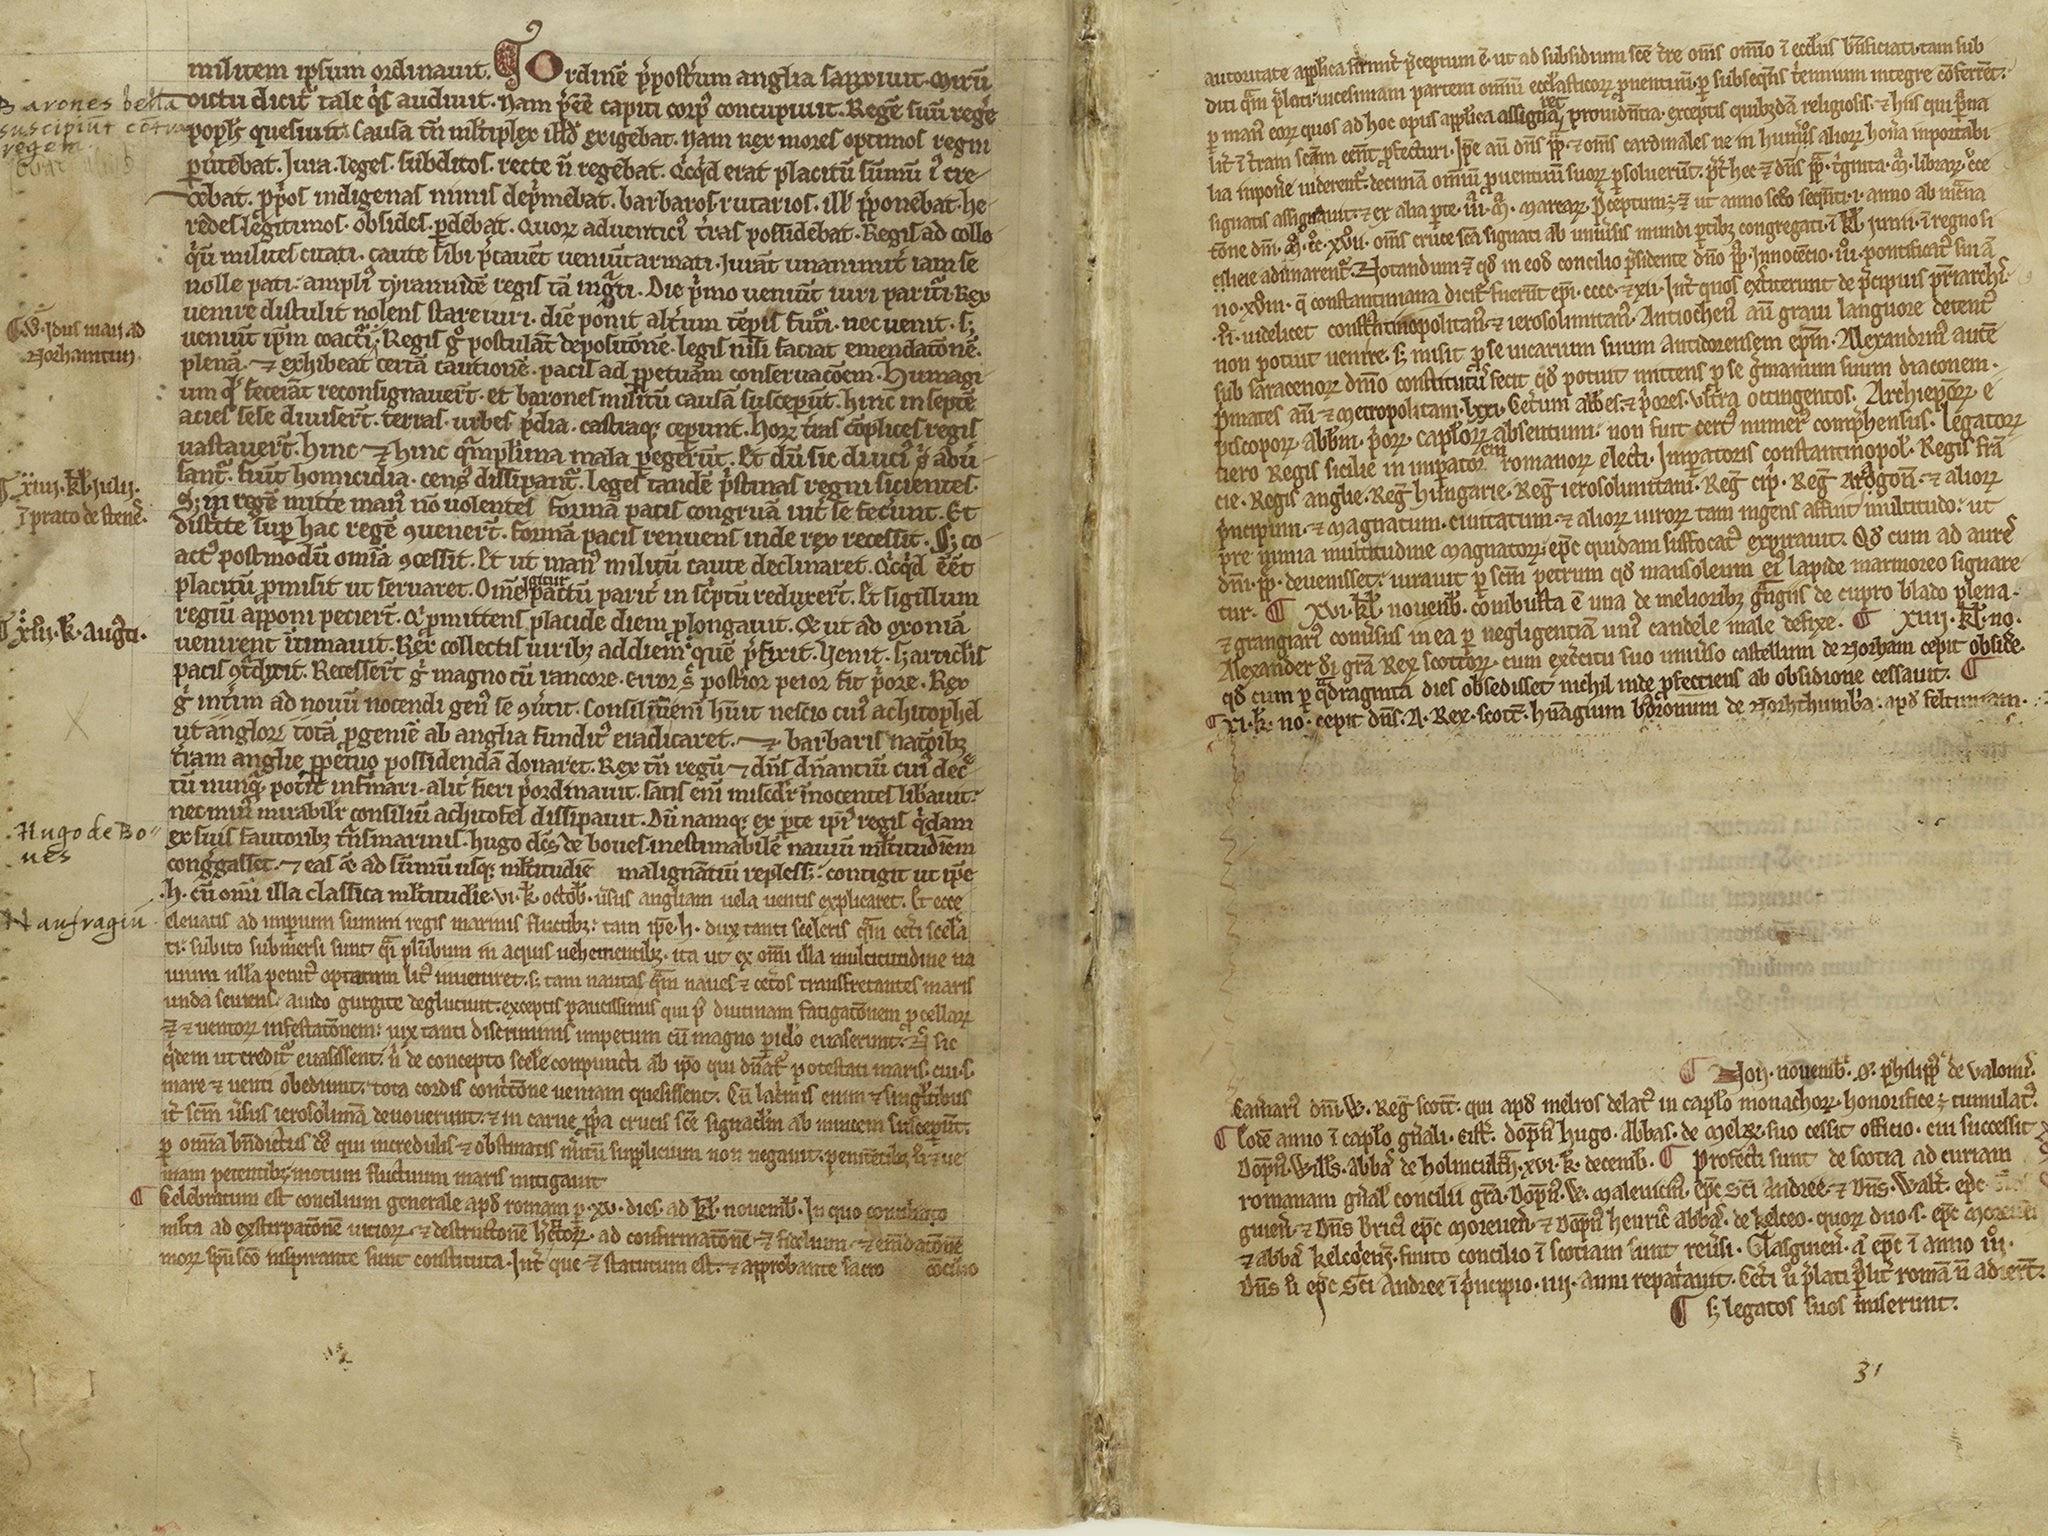 militem ipsum ordinauit. Ordinē p̄post̄um anglia sanxiuit. Mirū
dictu dicit᷑ tale q̄s audiuit. Nam p̄ēē capiti corp᷒ concupiuit. Regē suū reḡe
Barones bella
suscipiūt cōtra
regem
popl̄s quesiuit. Causa tn̄ ml̄tiplex illd̄ exigebat. Nam rex mores optimos regni
ꝑuertebat. Iura. leges. subditos. recte n̄ regebat. Q̄cq̄d erat placitū sūmū i᷒ cre
debat. ꝓp̄os indigenas nimis dep̄mebat. barbaros rutarios. ill᷒ p̄ponebat. he
redes legitimos. obsides. ꝑdebat. Quoꝝ aduentici᷒ t̄ras possidebat. Regis ad collo
q̄ū milites citati. caute sibi p̄cauēt ueniūt armati. Iurāt unanimit̄ iam se
nolle pati. ampli᷒ tyrannidē regis tā inḡti. Die p̄mo ueniūt iuri pariti᷒. Rex
uenire distulit nolens stare iuri. diē ponit alt̄um tēpis fut᷒i. nec uenit. sꝫ
W. Idus maii ad
Norhamtun
ueniūt ip̄m coact᷒i. Regis g̊ postulāt depositōnē. legis nisi faciat emendatōnē.
plenā. ⁊ exhibeat certā cautionē. pacis ad ꝑpetuam conseruacōem. Humagi
um q᷒ fecerāt reconsignauert̄. et barones militū causā suscep̄ūt. hinc in septē
acies sese diuisert̄. terras. urbes p̄dia. castraqꝫ cep̄unt. Hoꝝ t̄ras cōplices regis
uastauert̄. hinc ⁊ hinc q̄mplima mala ꝑegerūt. Et dū sic diuci᷒ s᷒ adu
sant᷑. fiūt homicidia. cens᷒ dissipant᷑. Leges tandē p̄stinas regni sicientes.
xiiii. kl̄. Iulij.
ī prato de stene᷑.
Sꝫ in regē mitte man᷒ nō uolentes formā pacis congruā int̄ se fecūnt. Et
discrete suꝑ hac regē 9uenert̄. Formā pacis renuens inde rex recessit. Sꝫ co
act᷒ postmodū omīa 9cessit. Et ut man᷒ militū caute declinaret. Q̄cq̄d ēēt
placitū ꝓmisit ut seruaret. Omē igitur pactū parit̄ in sc̄ptū reduxert̄. Et sigillum
regiū apponi peciert̄. Q᷒ ꝓmittens placide diem ꝓlongauit. Et ut ad oxoniā
xvii. k. Aug᷒ti.
uenirent ītimauit. Rex collectis uiribꝫ ad diem quē p̄fixit. Venit. sꝫ articl̄is
pacis 9t̄dicit. Recessert̄ g̊ magno cū rancore. error s᷒ posterior peior fit p̄ore. Rex
g̊ int̄im ad nouū nocendi gen᷒ se 9u̇tit. Consiliū eni hūit nescio cui᷒ achitophel
ut angloꝝ totā ꝓgeniē ab anglia fundit᷒ eradicaret. ⁊ barbaris nat᷒oibꝫ
t̄ram anglie ꝑpetuo possidendā donaret. Rex tn̄ regū ⁊ dn̄s dn̄antiū cui᷒ dec̄
tū nunq̄. pot̄it infirmari. alit̄ fieri p̄ordinauit. satis eni misc̄dr̄ īnocentes libauit.
nec min᷒ mirabil̄r consiliū achitofel dissipauit. Dū namqꝫ ex ꝑte ip̄i᷒ regis q̄dam
Hugo de Bo
ues
ex suis fautoribꝫ t̄nsmarinis. hugo dc̄s de boues. inestimabilē nauiū ml̄titudīem
cong̊gasset. ⁊ eas ad sūmū usqꝫ ml̄titudiē malignātiū repless̄. contigit ut ip̄e
.h. cū omi illa classica ml̄titudīe. vi. k̄. octob̄. u̇sus angliam uela uentis explicaret. Et ecce
Naufragiū
eleuatis ad imꝑium summi regis marinis fluctibꝫ. tam ip̄e .h. dux tanti sceleris q̄m cet̄i scela
ti. subito submersi sunt q̄i plūbum in aquis uehementibꝫ. ita ut ex omi illa multitudine na
uium ulla penit᷒ optatum lit᷒ inueniret. sꝫ tam nautas q̄m naues ⁊ cet̄os transfretantes maris
unda seuiens. auido gurgite degluciuit. exceptis paucissimis qui p᷒ diutinam fatigatōnem ꝓcellaꝝ
⁊ uentoꝝ infestatōnem. uix tanti discriminis impetum cū magno ꝑiclo euaserunt. N̄ sic
q̄dem ut credit᷑ euasissent. n̄ de concepto scelere conpuncti ab ip̄o qui dn̄at᷑ potestati maris. cui.s.
mare ⁊ uenti obediunt. tota cordis cont̄tōne ueniam quesissent. Cū lac̄mis enim ⁊ singl̄tibus
it̄ scm̄ u̇sus ierosolimā deuouerunt. ⁊ in carne ꝓp̄a crucis sc̄e signac̄lm ab inuicem suscep̄ūt.
ꝑ omnia bn̄dictus de᷒ qui incredulis ⁊ obstinatis m̄itū supplicium non negauit. penitētibꝫ u̇ ⁊ ue
niam petentibꝫ. motum fluctuum maris mitigauit
¶ Celebratum est concilium generale apd̄ romam ꝑ .xv. dies. ad kl̄. nouemb̄. In quo concilio
ml̄ta ad exstirpatōnē uicioꝝ. ⁊ destructionē h̄eticoꝝ. ad confirmatōnē ⁊ fidelium. ⁊ em̄datōnē
moꝝ sp̄u sc̄o inspirante sunt constituta. Int̄ que ⁊ statutum est. ⁊ approbante sacro cōcilio
autoritate app̄lica firmit̄ p̄ceptum ē. ut ad subsidium sc̄e t̄re om̄s om̄io ī eccl̄iis bn̄ficiati. tam sub
diti q̄m p̄lati. uicesimam partem omniū eccl̄asticoꝝ ꝓuentuū. ꝑ subseq̄ns t̄ennium integre cōferent᷑.
ꝑ man᷒ eoꝝ quos ad hoc opus app̄lica assignaret prouidn̄tia. exceptis quibꝫdā religiosis. ⁊ hiis qui ꝑsona
lit̄ ī t̄ram scām eēnt ꝓfecturi. Ip̄e au̇ dn̄s p̄p̄. ⁊ om̄s cardinales ne in hum᷒os alioꝝ hon̄a inportabi
lia inpon̄e uiderent᷑. decimā omniū prouentuū suoꝝ ꝑsoluerūt. p̄t̄ hec ⁊ dn̄s p̄p̄. t̄ginta. m̄. libraꝝ cruce
signatis assignauit. ⁊ ex alia ꝑte. iii. m̄. marcaꝝ. p̄ceptum ⁊ ut anno scd̄o seq̄nti .i. anno ab incarna
tōne dn̄i. m̄. cc. xvii. om̄s cruce sc̄a signati ab uniuersis mundi ꝑtibꝫ congregati. ī kl̄. Iunii. ī regno si
cilie adunarent᷑. Notandum ⁊ qd̄ in eod̄ concilio p̄sidente dn̄o p̄p̄. Innocētio. iii. pontificat᷒ sui ā
no .xviii. q̄ constantiniana dicit᷑ fuerūt ep̄i .cccc. ⁊ xii. Int̄ quos extiterunt de p̄cipuis pr̄iarchi.
ii. uidelicet constātinopolitan᷒. ⁊ ierosolimitan᷒. Antiochen᷒ au̇ graui languore detent᷒
non potuit uenire. sꝫ misit ꝓ se uicarium suum Antidorensem ep̄m. Alexandrin᷒ autē
sub saracenoꝝ dn̄io constitut᷒ fecit qd̄ potuit mittens ꝓ se ḡmanum suum diaconem.
p̄mates au̇ ⁊ metropolitani. lxxi. Cet̄um abb̄es. ⁊ p̄ores. ultra octingentos. Archiep̄oꝝ. E
piscopoꝝ. abb̄m. p̄oꝝ. capl̄oꝝ absentium. non fuit cert᷒ numer᷒ comp̄hensus. legatoꝝ
uero Regis sicilie in imꝑatorem romanoꝝ electi. Imꝑatoris constantinopol̄. Regis frā
cie. Regis anglie. Reg᷒ hungarie. Reg᷒ ierosolimitani. Reg᷒ cip̄. Reg᷒ Arogon̄. ⁊ alioꝝ
p̄ncipum. ⁊ magnatum. ciuitatum. ⁊ alioꝝ uiroꝝ tam ingens affuit multitudo. ut
pre nimia multitudine magnatoꝝ. ep̄c quidam suffocat᷒ expirauit. Qd̄ cum ad aures
dn̄i. p̄p̄. deuenisset. iurauit ꝑ scm̄ petrum qd̄ mausoleum ei᷒ lapide marmoreo signare
tur. ¶ xvi. kl̄. nouemb̄. combusta ē una de melioribꝫ g̊ngiis de cupro blado plena.
⁊ grangiari᷒ conu̇sus in ea ꝑ negligentiam uni᷒ candele male defixe. ¶ xiiij. kl̄. no.
Alexander di grā. Rex scottoꝝ. cum exercitu suo uniu̇so castellum de Norham cepit obside.
qd̄ cum ꝑ q̄draginta dies obsedisset nichil inde ꝓficiens ab obsidione cessauit. ¶
¶ xi. k. no. cepit dn̄s. A. Rex. scott̄. humagium baronum de Northumb̄a. apd̄ feltunam.
¶ Non. nouemb̄. o. philipp᷒ de valoniis.
Camerari᷒ dn̄i. W. Reg᷒ scott̄. qui apd̄ melros delat᷒ in capl̄o monachoꝝ. honorifice ⁊ tumulat᷒.
¶ Eodē anno ī capl̄o gn̄ali. cist̄. dopn̄ hugo. Abbas. de melꝝ. suo cessit officio. cui successit
Dopn̄ Will̄s. abb̄as de holmcultrā. xvi. k. decemb̄. ¶ Profecti sunt de scotia ad curiam
romanam gn̄al̄ concilii grā. Dopn̄. W. maleuicin᷒. ep̄c Sci᷒ Andree. ⁊ Dn̄s. Walt̄. ep̄c. Glas
guien̄. ⁊ Dn̄s Brici᷒ ep̄c moreuen̄. ⁊ Dopn̄ henric᷒ abb̄as. de kelceo. quoꝝ duo .s. ep̄c moreuen̄
⁊ abb̄as kelcoensis. finito concilio ī scotiam sunt reu̇si. Glasguien̄. ā ep̄c ī anno iii.
Dn̄s u̇ ep̄c Sci Andree ī p̄ncipio .iiij. anni repatauit. Cet̄i u̇ p̄lati ꝑsonalit̄ romā n̄ adiert̄.
¶ sꝫ legatos suos miserunt.
31